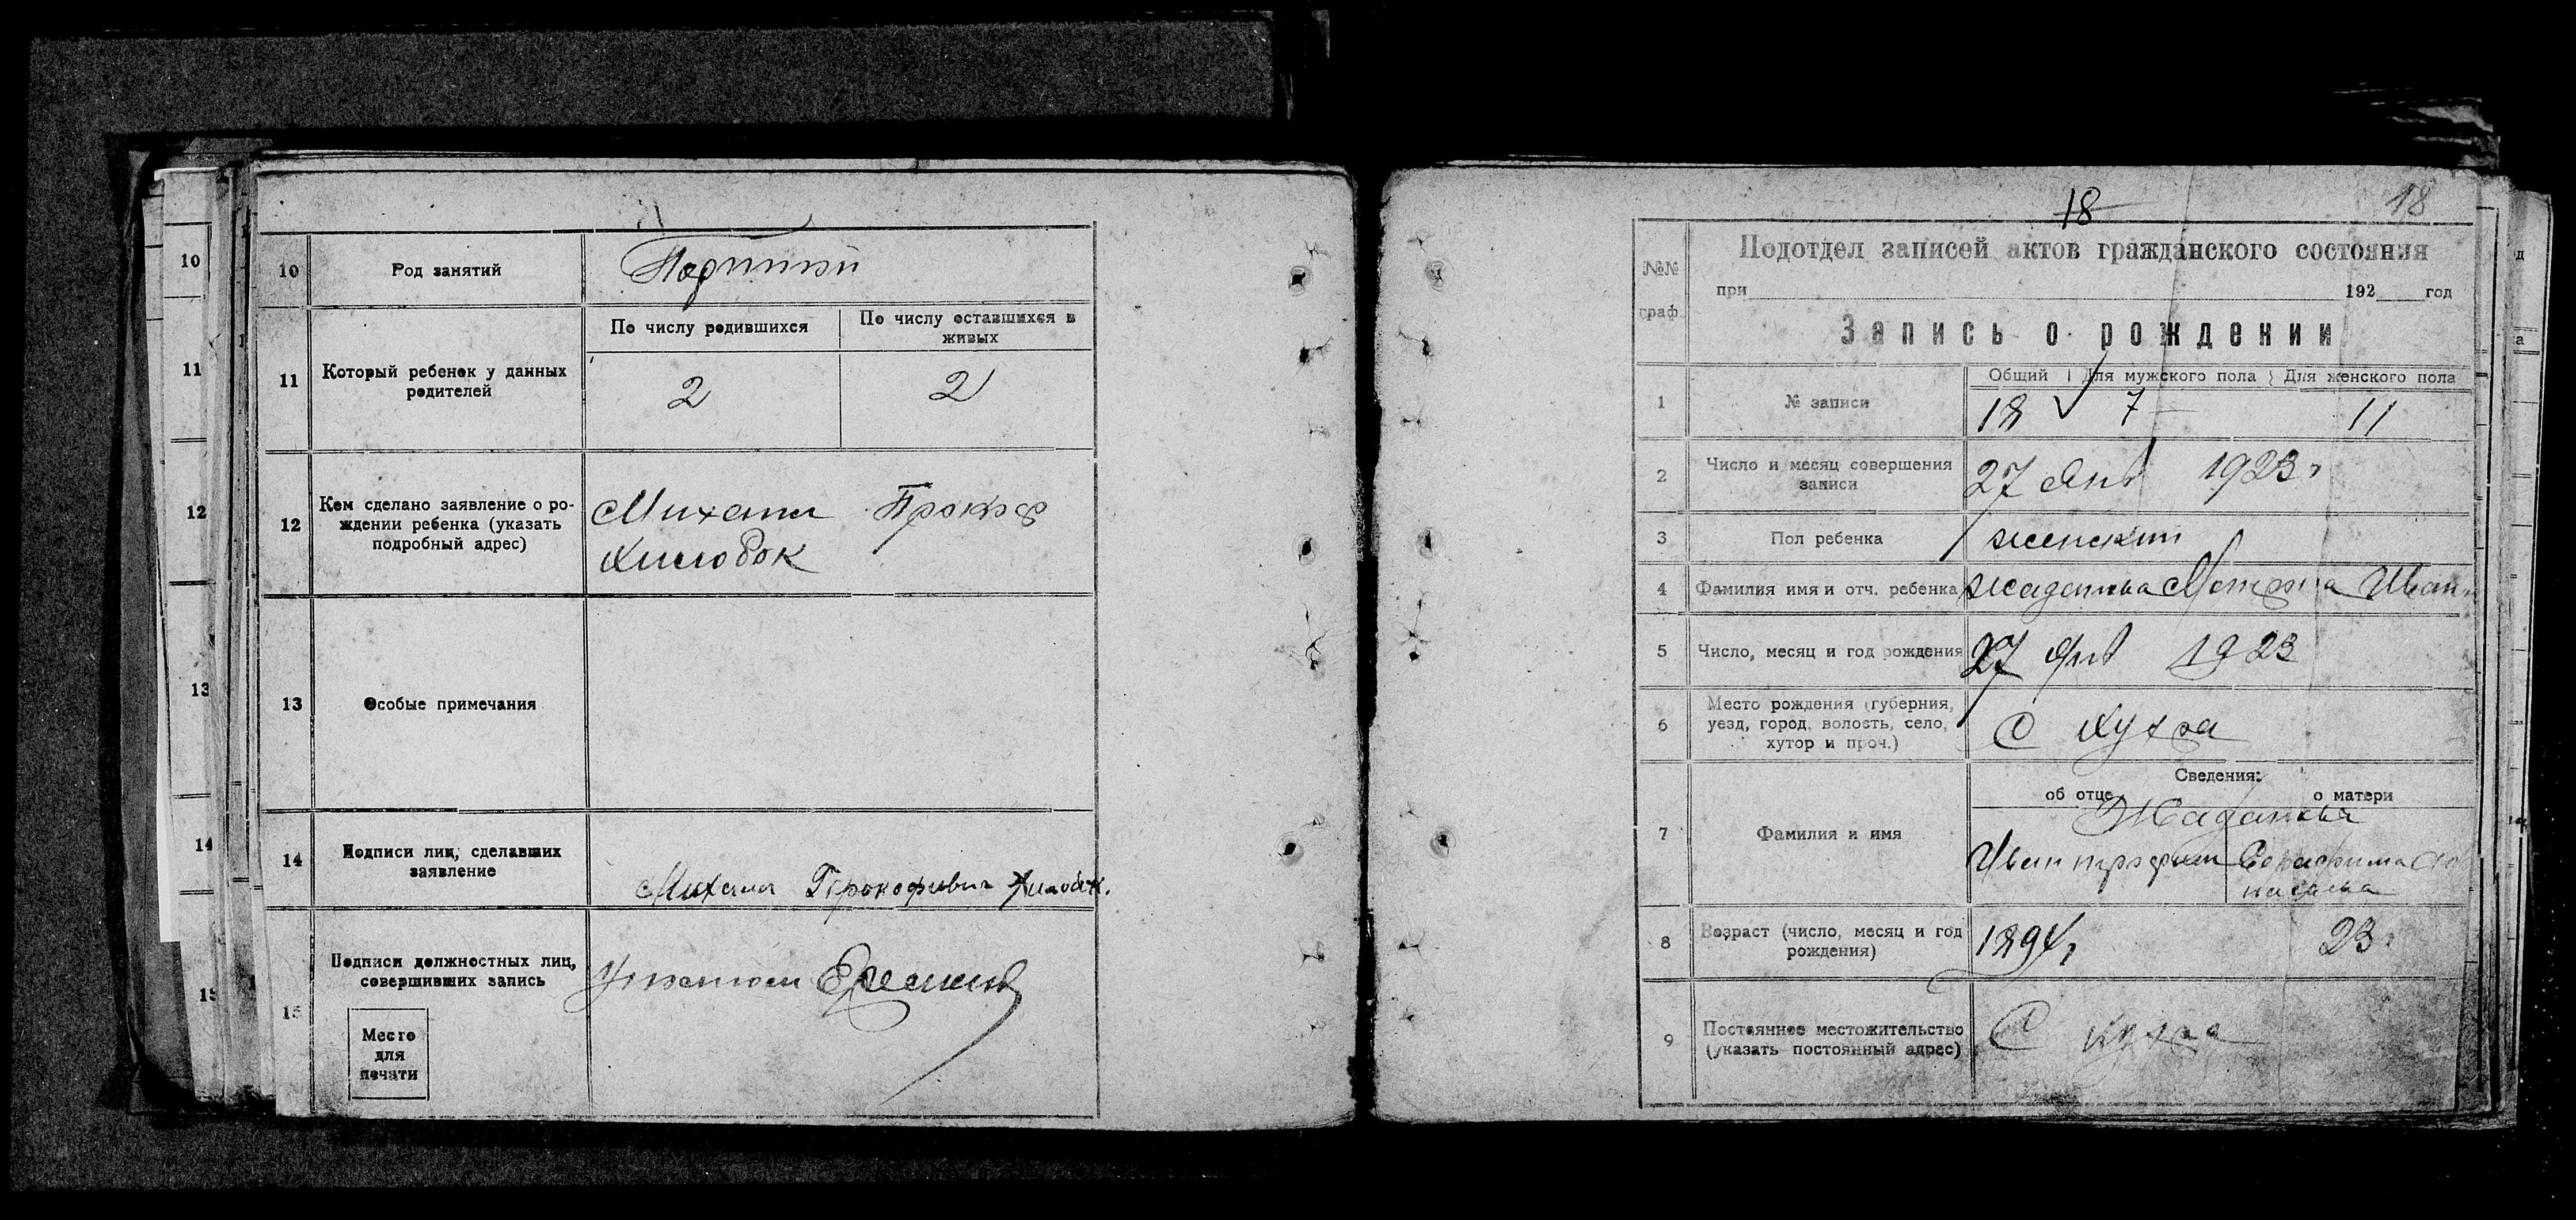 10
Род занятий
Портной
11
Который ребенок у данных родителей
По числу родившихся
По числу оставшихся в живых
2
2
12
Кем сделано заявление о рождении ребенка (указать подробный адрес)
Михаил Прокоф
Хилобок
13
Особые примечания
14
Подписи лиц, сделавших заявление
Михаил Прокофиевич Хилобок.
15
Подписи должностных лиц, совершивших запись
Место
для
печати
10
11
12
13
14
15
18
18
№№ граф
Подотдел записей актов гражданского состояния
при 192 год
Запись о рождении
1
№ записи
Общий
Для мужского пола
Для женского пола
18
7
11
2
Число и месяц совершения записи
27 Янв 1923 г
3
Пол ребенка
женский
4
Фамилия имя и отч. ребенка
Иван.
5
Число, месяц и год рождения
27 Янв 1923
6
Место рождения (губерния, уезд, город, волость, село, хутор и проч.)
С
7
Фамилия и имя
Сведения:
об отце
о матери
Иван
Серафима
8
Возраст (число, месяц и год рождения)
1894 г
23 г
9
Постоянное местожительство (указать постоянный адрес)
С